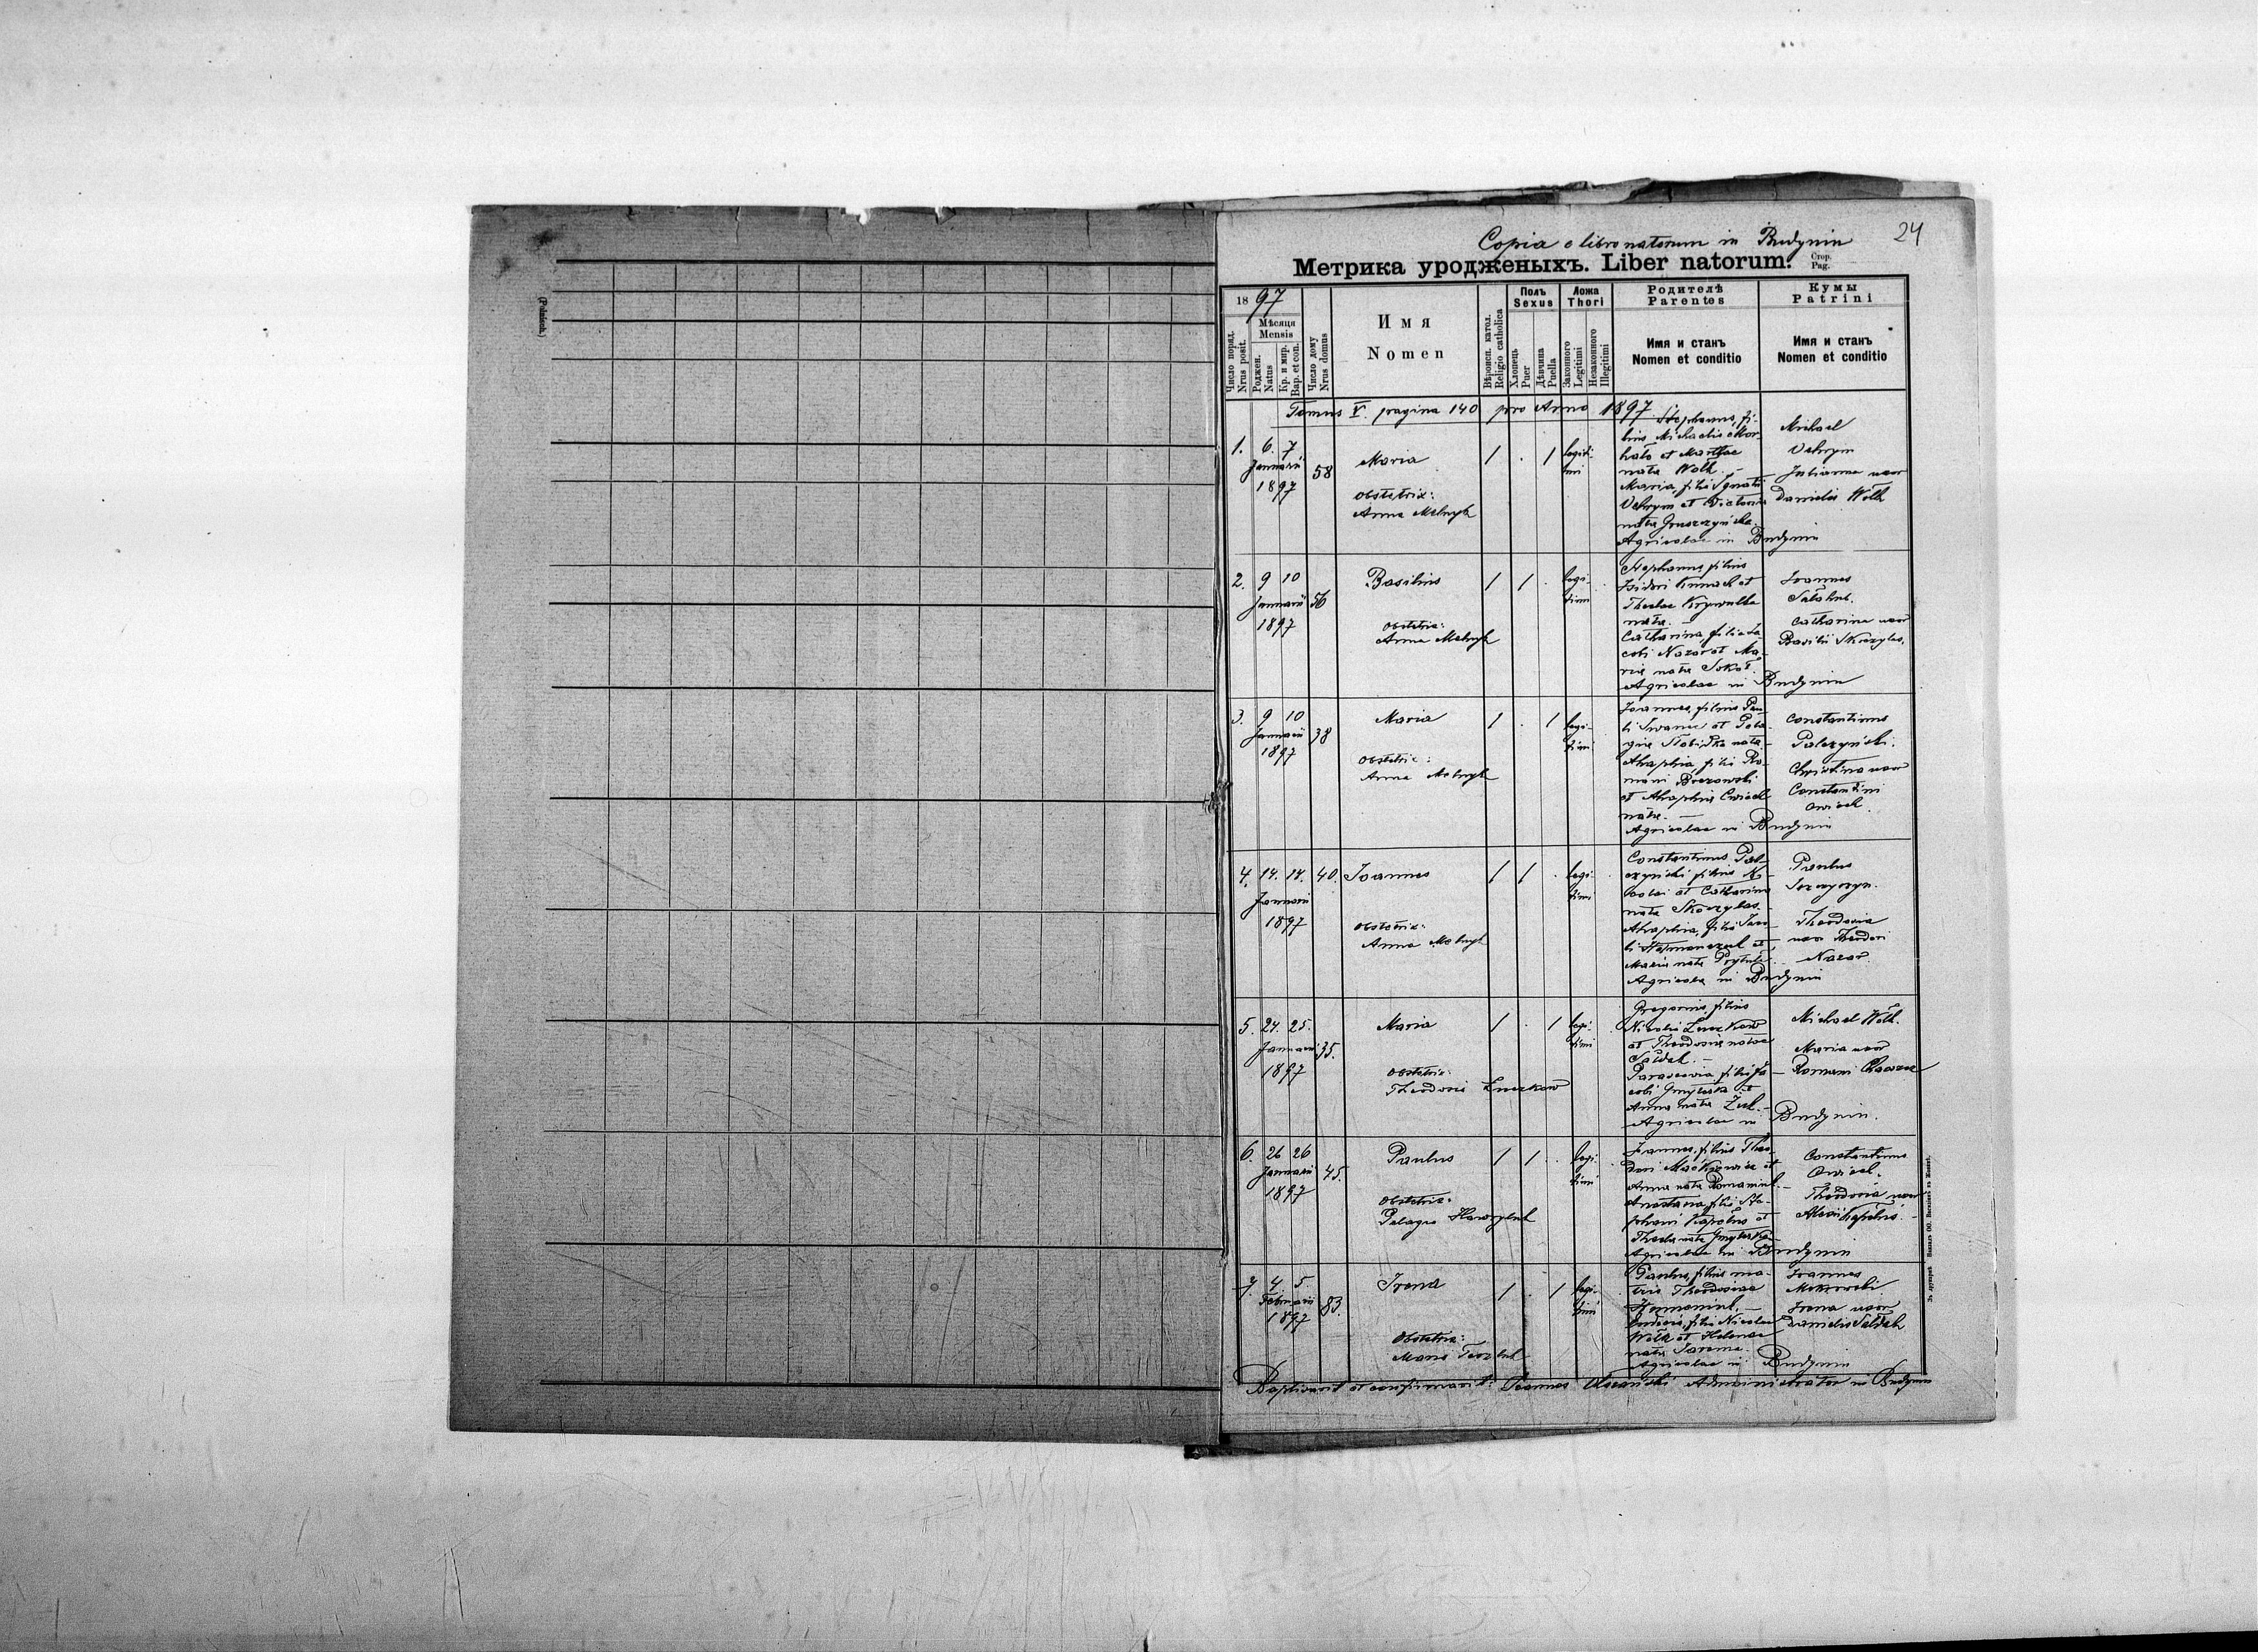 24
Copia e libro natorum in Budynin
Метрика уродженыхъ. Liber natorum.
Стор.
Pag.
1897
Число поряд.
Nrus posit.
Мѣсяця
Mensis
Роджен.
Natus
Кр. и мир.
Bap. et con.
Число дому
Nrus domus
Имя
Nomen
Вѣроисп. катол.
Religio catholica
Полъ
Sexus
Хлопець
Puer
Дѣвчина
Puella
Ложа
Thori
Законного
Legitimi
Незаконного
Illegitimi
Родителѣ
Parentes
Имя и станъ
Nomen et conditio
Кумы
Patrini
Имя и станъ
Nomen et conditio
Tomus V. pagina 140 pro Anno 1897
1. 6. 7
Januarii
1897
58
Maria
Obstetrix:
Anna Melnyk
1 . 1
legiti-
mi
Stephanus, fi-
lius Michaelis
et Marthae
nata Wolk.
Maria, filia Ignatii
Uchryn et Victoria
nata Gruszczyńska.
Agricolae in Budynin
Michael
Uchryn
Julianna uxor
Danielis Wolk
2. 9 10
Januarii
1897
56
Basilius
Obstetrix:
Anna Melnyk
1 1 .
legi-
timi
Stephanus, filius
Isidori et
Theclae
nata.
Catharina, filia Ja-
cobi Nazar et Ma-
ria nata Sokół.
Agricolae in Budynin
Joannes
Catharina uxor
Basilii Skoczylas.
3. 9 10
Januarii
1897
38
Maria
Obstetrix:
Anna Melnyk
1 . 1
legi-
timi
Joannes, filius Pau-
li et Pela-
gia nata
Ahaphia filia Ro-
mani
et Ahaphia Cwiach
nata.
Agricolae in Budynin
Constantinus
Palczyński.
Christina uxor
Constantini
Cwiach.
4. 14. 14.
Januarii
1897
40.
Joannes
Obstetrix:
Anna Melnyk
1 1 .
legi-
timi
Constantinus Pal-
czyński filius Ni-
colai et Catharina
nata Skoczylas.
Ahaphia, filia
et
Maria nata Prytula
Agricolae in Budynin
Paulus
Theodosia
uxor Theodori
Nazar.
5. 24. 25.
Januarii
1897
35.
Maria
Obstetrix:
Theodosia Łuczkow
1 . 1
legi-
timi
Gregorius, filius
Nicolai Łuczkow
et Theodosiae natae
Sałdak.
Parascevia filia Ja-
cobi Gmyterka et
Anna nata Żuk.
Agricolae in Budynin.
Michael Wolk.
Maria uxor
Romani
6. 26 26
Januarii
1897
45.
Paulus
Obstetrix:
Pelagia Hawryluk
1 1 .
legi-
timi
Joannes, filius Theo-
dori et
Anna nata Romaniuk.
Anastasia, filia Ste-
phani Kapelus et
Thecla nata Gmyterka
Agricolae in Budynin
Constantinus
Cwiach.
Theodosia uxor
Alexii Kapelus.
7. 4 5
Februarii
1897
83.
Irena
Obstetrix:
Maria
1 . 1
legi-
timi
Paulus, filius ma-
tris Theodosiae
Eudocia, filia Nicolai
Wolk et Helenae
nata Jarema.
Agricolae in Budynin
Joannes
Irena uxor
Danielis Sałdak
Baptisavit et confirmavit: Joannes Administrator in Budynin